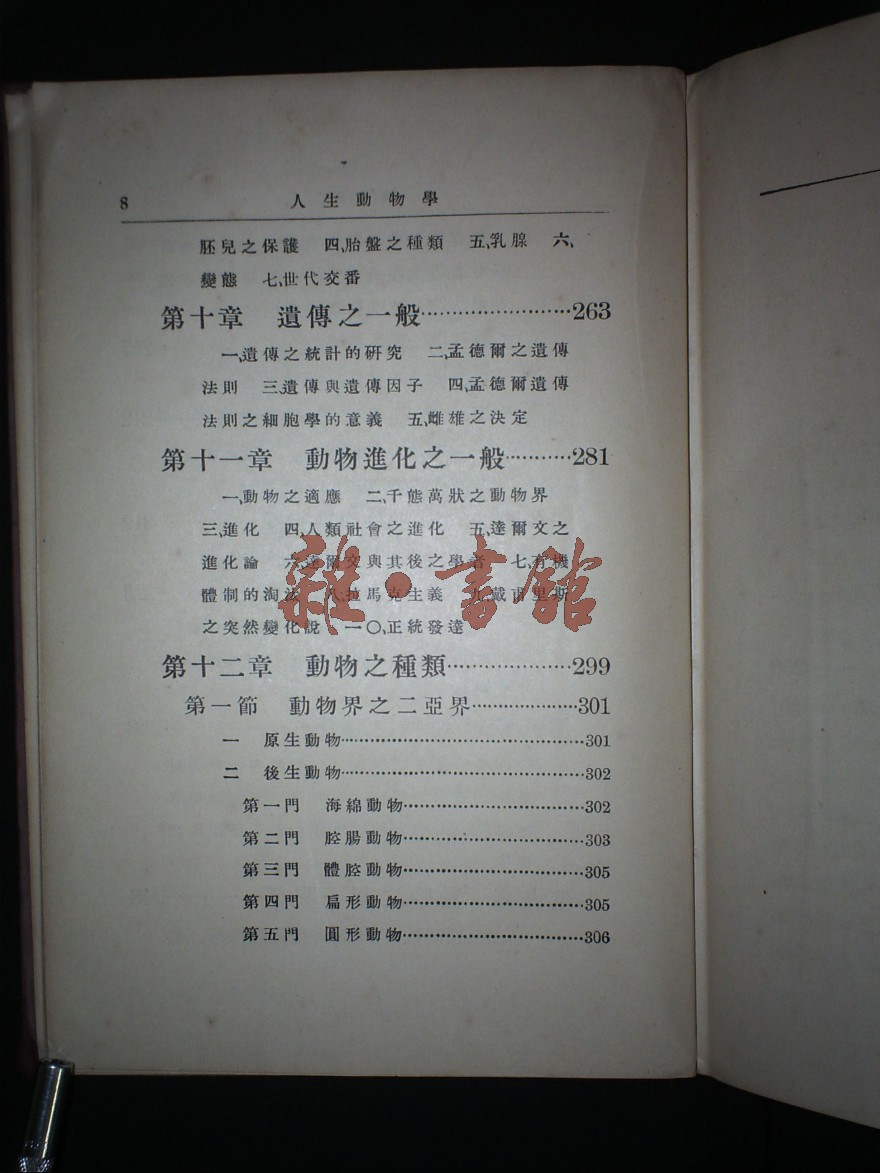 8 人生動物學
胚兒之保護 四、胎盤之種類 五、乳腺 六、
變態 七、世代交番
第十章 遺傳之一般……………………263
一、遺傳之統計的研究 二、孟德爾之遺傳
法則 三、遺傳與遺傳因子 四、孟德爾遺傳
法則之細胞學的意義 五、雌雄之決定
第十一章 動物進化之一般…………281
一、動物之適應 二、千態萬狀之動物界
三、進化 四、人類社會之進化 五、達爾文之
進化論 六、達爾文與其後之學者 七、有機
體制的淘汰 八、拉馬克主義 九、戴甫里斯
之突然變化說 一〇、正統發達
雜·書館
第十二章 動物之種類…………………299
第一節 動物界之二亞界………………301
一 原生動物…………………………………301
二 後生動物…………………………………302
第一門 海綿動物…………………………302
第二門 腔腸動物…………………………303
第三門 體腔動物…………………………305
第四門 扁形動物…………………………305
第五門 圓形動物…………………………306